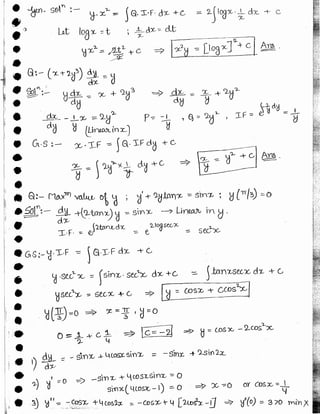 Gen. solⁿ :- y.x² = ∫Q.I.F. dx + c = 2∫logx. 1/x dx + c
Let logx = t ; 1/x dx = dt
yx² = 2t²/2 + c ⇒ x²y = [logx]² + c Ans.
Q:- (x+2y³) dy/dx = y
Solⁿ:- y dx/dy = x + 2y³ ⇒ dx/dy = x/y + 2y²
dx/dy - 1/y x = 2y² P = -1/y , Q = 2y² , I.F = e^∫-1/y dy = 1/y
(Linear in x)
G.S :- x.I.F = ∫Q.I.F dy + c
x/y = ∫2y² × 1/y dy + c ⇒ x/y = y² + c Ans.
Q:- Maxᵐ value of y ; y' + 2y tanx = sinx ; y(π/3) = 0
Solⁿ:- dy/dx + (2tanx)y = sinx → Linear in y.
I.F. = e^∫2tanx dx = e^2logsecx = sec²x
G.S:- y.I.F = ∫Q.I.F dx + c
y.sec²x = ∫sinx.sec²x dx + c = ∫tanxsecx dx + c
ysec²x = secx + c ⇒ y = cosx + ccos²x
y(π/3) = 0 ⇒ x = π/3 , y = 0
0 = 1/2 + c 1/4 ⇒ c = -2 ⇒ y = cosx - 2cos²x
1) dy/dx = -sinx + 4cosxsinx = -sinx + 2sin2x
2) y' = 0 ⇒ -sinx + 4cosxsinx = 0
sinx(4cosx - 1) = 0 ⇒ x = 0 or cosx = 1/4
3) y" = -cosx + 4cos2x = -cosx + 4[2cos²x - 1] ⇒ y"(0) = 3 > 0 min